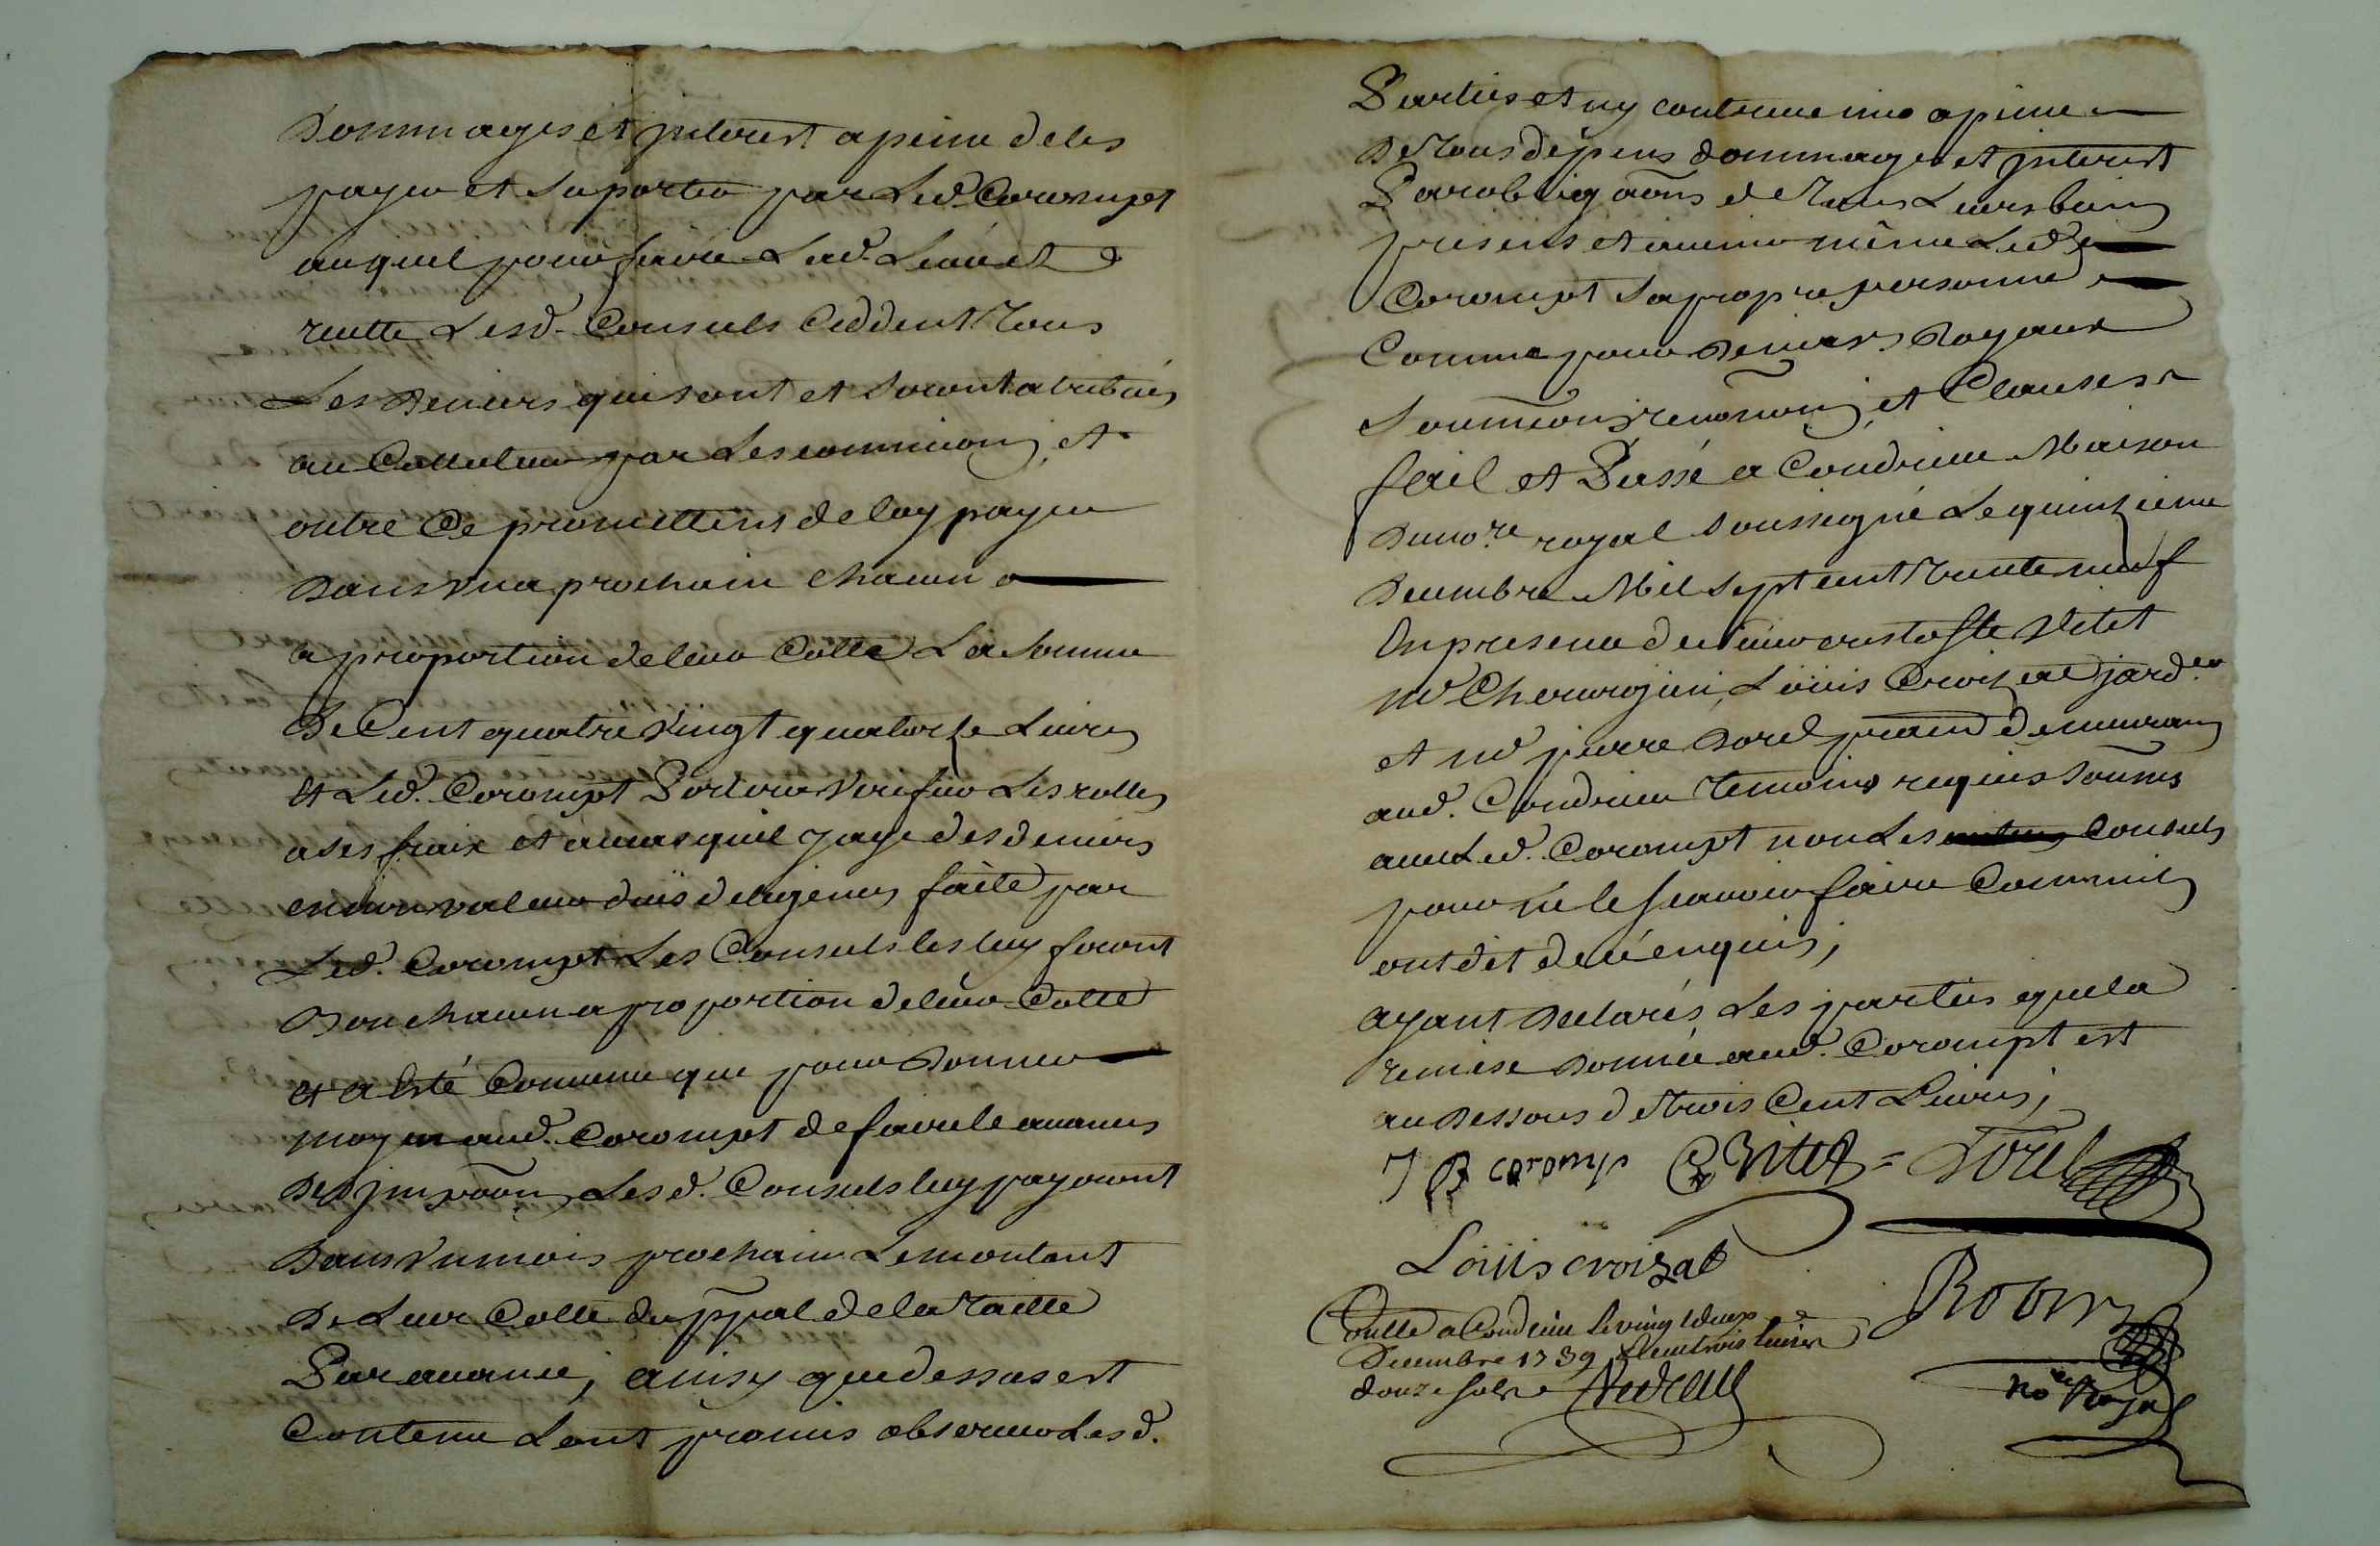 Dommages et jnterest a peine de les
payer et suporter par Led. Corompt
auquel pour faire Lad. Levée et
recette Lesd. Consuls Ceddent Tous
Les deniers qui sont et seront atribués
au Collecteur par Les commissions, et
outre Ce promettent de luy payer
Dans Un a prochain chacun
a proportion de leur Cotte La somme
De Cent quatre Vingt quatorze Livres
Et Led. Corompt Portera Verifier Les rolles
a ses fraix et au cas quil y aye des deniers
en non valeur dües deligences faitte par
Led. Corompt Les Consuls les luy feront
Bon chacun a proportion de leur Cotte
et a Esté Convenu que pour donner
moyen aud. Corompt de faire le avances
Des jmpoõns Lesd. Consuls luy payeront
Dans Un mois prochain Le montant
De Leur Cotte du ppal de la Taille
Par avance; ainsy que dessus est
Contenu Lont promis observer Lesd.
Parties et ny contrevenir a peine
De Tous dépens dommages et jnterest
Par obligaõns de Tous Leurs biens
presens et avenir même Led.
Corompt sa propre personne
Comme pour Deniers Royaux
Soumions renonõns et Clauses
fait et Passé a Condrieu Maison
Du no.re royal soussigné Le quinzieme
Decembre Mil sept cent Trente neuf
En presence de sieur cristofle Vitet
me Cherurgien, Loüis Croizat jard.er
et me pierre Dorel praen demeurans
aud. Condrieu Temoins requis soũnés
avec Led. Corompt non Les Consuls
pour ne le scavoir faire Comme ils
ont dit de ce enquis;
ayant declarés Les parties que la
remise donnée aud. Corompt est
au dessous de trois Cent Livres;
J B coromp C Vitet = Dorel
Loüis croizat
Robin
no.re Royal
Conllé a Condrieu le vingt deux
Decembre 1739 Reçu trois livres
douze sols